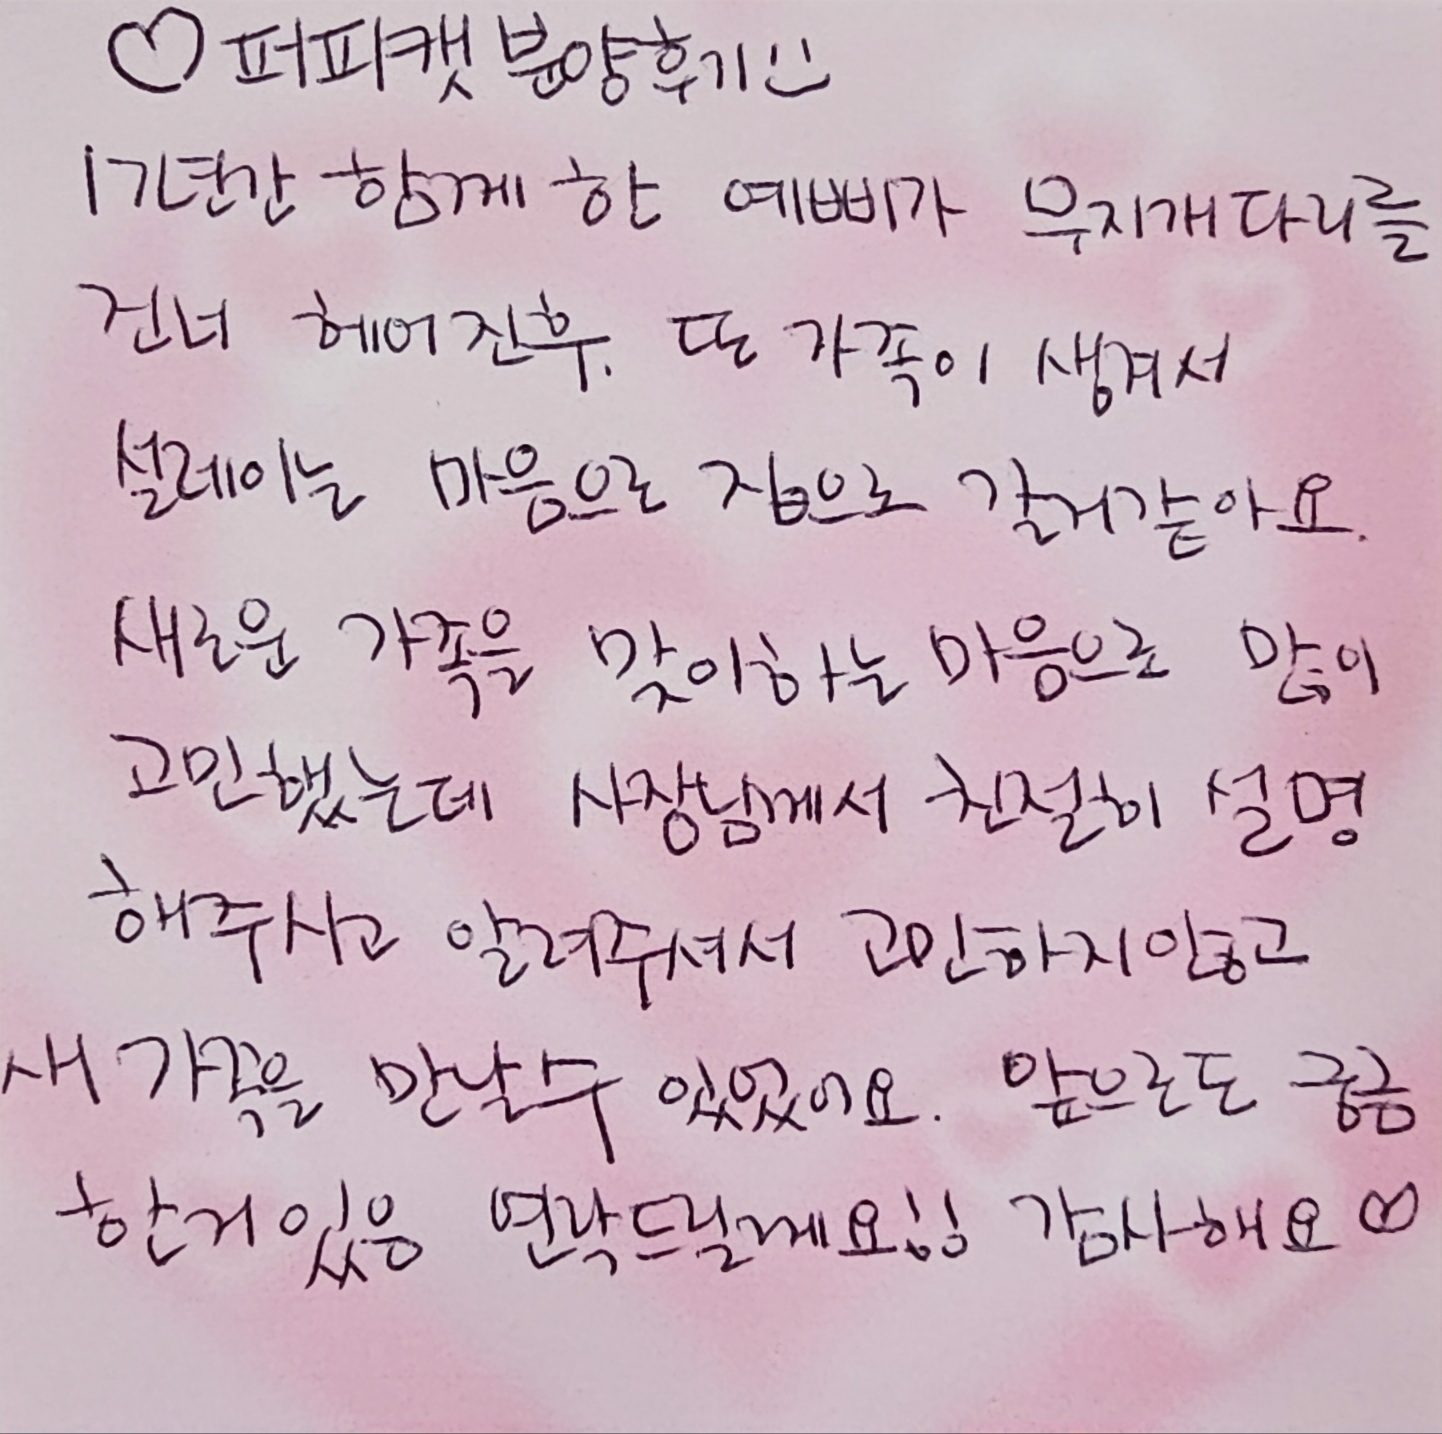 ♡퍼피캣 분양후기!!
17년간 함께 한 예삐가 무지개다리를
건너 헤어진후. 또 가족이 생겨서
설레이는 마음으로 집으로 갈거같아요.
새로운 가족을 맞이하는 마음으로 많이
고민했는데 사장님께서 친절히 설명
해주시고 알려주셔서 고민하지않고
새 가족을 만날수 있었어요. 앞으로도 궁금
한거있음 연락드릴께요!! 감사해요♡